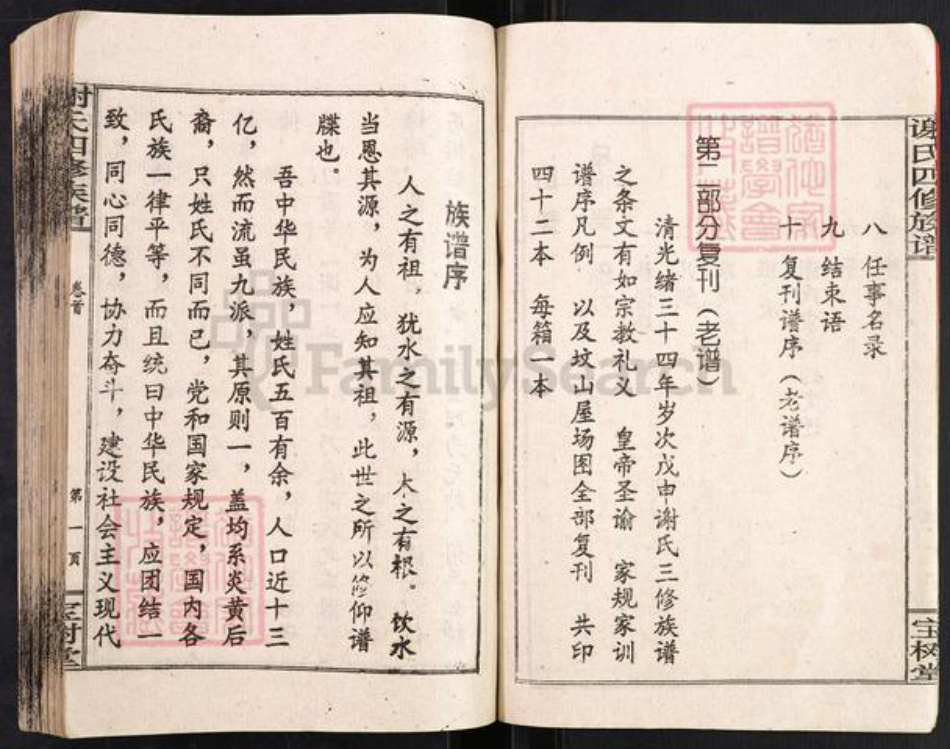 谢氏四修族谱
宝树堂
八 任事名录
九 结束语
十 复刊谱序（老谱序）
第二部分复刊（老谱）
清光绪三十四年岁次戊申谢氏三修族谱
之条文有如宗教礼义 皇帝圣谕 家规家训
谱序凡例 以及坟山屋场图全部复刊 共印
四十二本 每箱一本
族谱序
人之有祖，犹水之有源，木之有根。饮水
当思其源，为人应知其祖，此世之所以修仰谱
牒也。
吾中华民族，姓氏五百有余，人口近十三
亿，然而流虽九派，其原则一，盖均系炎黄后
裔，只姓氏不同而已，党和国家规定，国内各
民族一律平等，而且统曰中华民族，应团结一
致，同心同德，协力奋斗，建设社会主义现代
谢氏四修族谱
卷首
第一页
宝树堂
FamilySearch